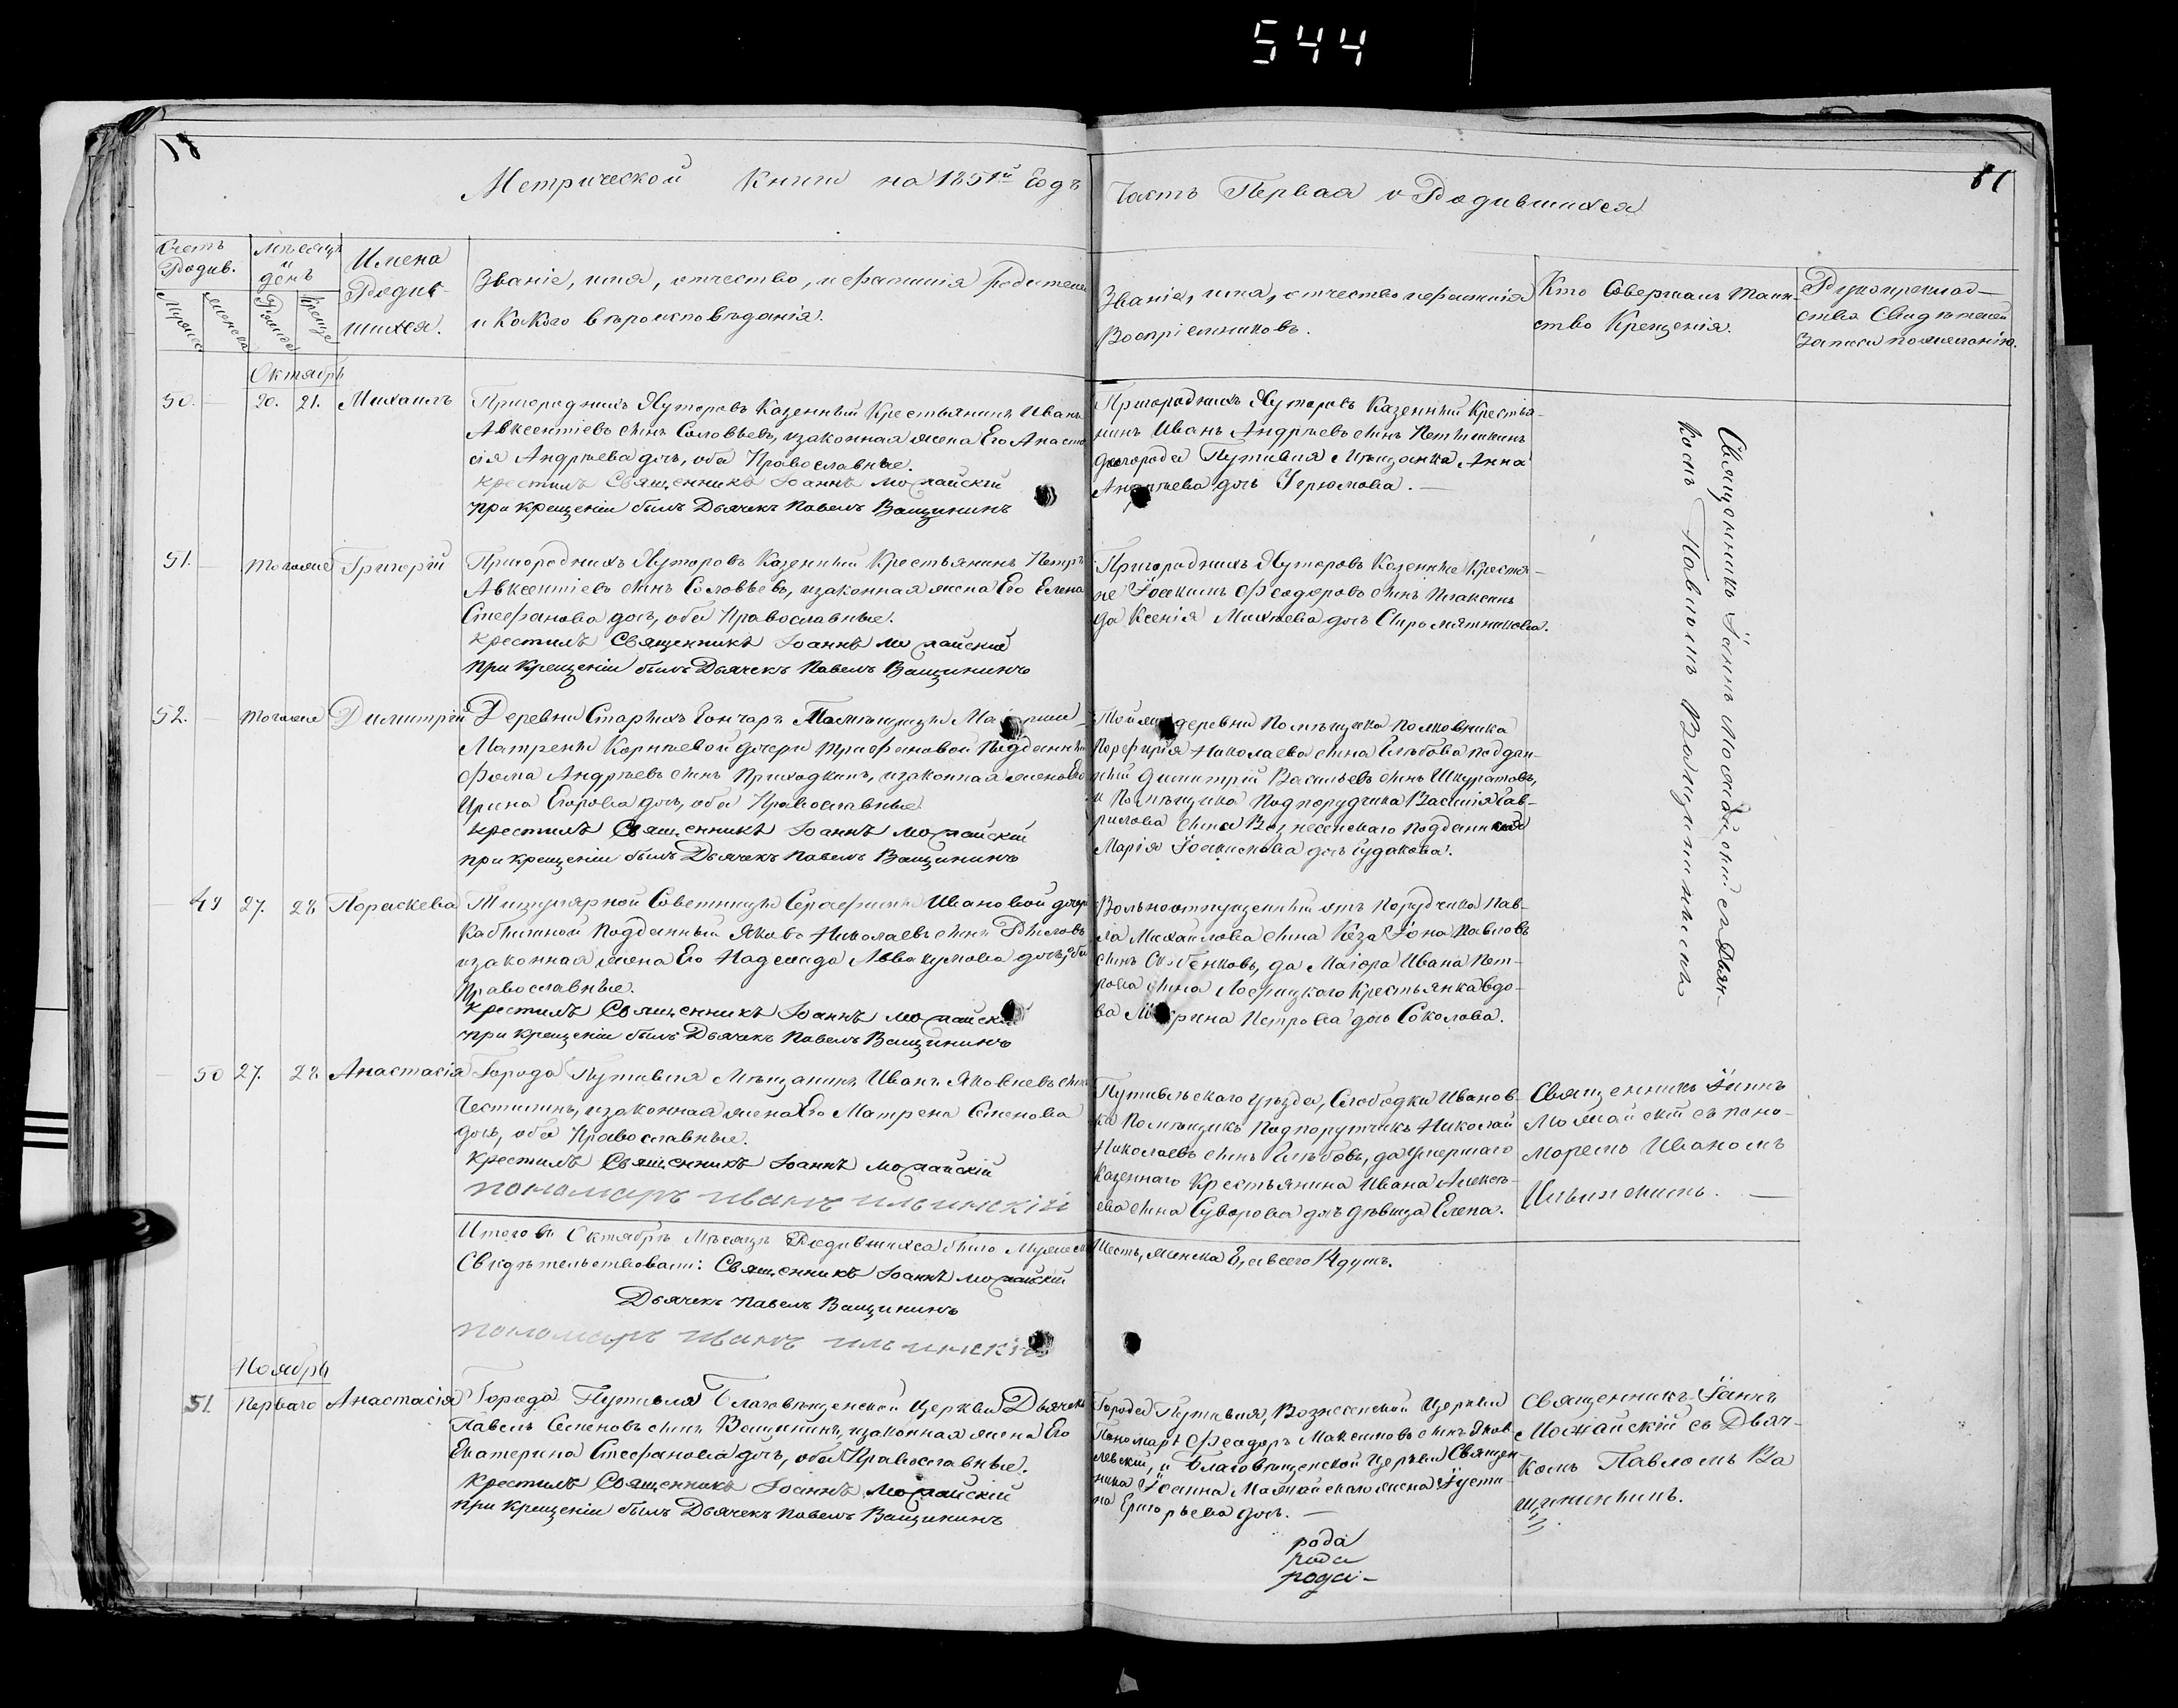 544
18
81
Метрической Книги на 1851й Годъ
Часть Первая о Родившихся
Счетъ Родив.
Мужеска
женска
Мѣсяцъ и день
Рожде
Креще
Имена
Родив-
шихся.
Званіе, имя, отчество, и фамилія родителей
и Какого вѣроисповѣданія.
Званіе, имя, отчество и фамилія
Воспріемниковъ.
Кто Совершалъ Таин-
ство Крещенія.
Рукоприклад-
ства Свидѣтелей
Записи по желанію.
Октябрь
50. 20. 21. Михаилъ
Пригородныхъ Хуторовъ Казенный Крестьянинъ Иванъ
Авксентіевъ сынъ Соловьевъ, и законная жена Его Анаста
сія Андрѣева дочь, оба Православные.
крестилъ Священникъ Іоаннъ Можайскій
при крещеніи былъ Дьячекъ Павелъ Ващининъ
Пригородныхъ Хуторовъ Казенный Крестья-
нинъ Иванъ Андрѣевъ сынъ
да города Путивля Мѣщанка Анна
Андрѣева дочь Угрюмова.
51. тогоже Григорій
Пригородныхъ Хуторовъ Казенный Крестьянинъ Петръ
Авксентіевъ сынъ Соловьевъ, и законная жена Его Елена
Стефанова дочь, оба Православные.
крестилъ Священникъ Іоаннъ Можайскій
при Крещеніи былъ Дьячекъ Павелъ Ващининъ
Пригородныхъ Хуторовъ Казенные Крестья-
не Іоакимъ Феодоровъ сынъ Плаксинъ
да Ксенія Михѣева дочь Сыромятникова.
52. тогоже Димитрій
Деревни Старыхъ Гончаръ Помѣщицы Маіорши
Матрены Корнѣевой дочери Трифановой Подданный
Фома Андрѣевъ сынъ Приходкинъ, и законная жена Его
Ирина Егорова дочь, оба Православные.
крестилъ Священникъ Іоаннъ Можайскій
при крещеніи былъ Дьячекъ Павелъ Ващининъ
Тойже деревни Помѣщика Полковника
Порфирія Николаева сына Глѣбова поддан-
ный Димитрій Васильевъ сынъ Шкуратовъ,
и Помѣщика Подпорудчика Василія Гав-
рилова сына Вознесенскаго подданная
Марія Іоакимова дочь Гудакова.
Священникъ Іоаннъ Можайскій съ Дьяч-
комъ Павломъ Ващининымъ
49 27. 28. Параскева
Титулярной Советницы Серафимы Ивановой дочери
Кабыжной подданный Яковъ Николаевъ сынъ Рыловъ
и законная жена Его Надежда Аввакумова дочь, оба
Православные.
крестилъ Священникъ Іоаннъ Можайскій
при крещеніи былъ Дьячекъ Павелъ Ващининъ
Вольноотпущенный отъ Порудчика Пав-
ла Михайлова сына Іона Павловъ
сынъ да Маіора Ивана Пет-
рова сына Лофицкого Крестьянка вдо-
ва Петрова дочь Соколова.
50 27. 28. Анастасія
Города Путивля Мѣщанинъ Иванъ Яковлевъ сынъ
Честилинъ, и законная жена Его Матрена Семенова
дочь, оба Православные.
крестилъ Священникъ Іоаннъ Можайскій
пономарь иванъ ильинскій
Путивльскаго уѣзда, Слободки Иванов-
ки Помѣщикъ Подпорутчикъ Николай
Николаевъ сынъ Глѣбовъ, да умершаго
Казеннаго Крестьянина Ивана Алексѣ-
ева сына Суворова дочь дѣвица Елена.
Священникъ Іоаннъ
Можайскій съ поно-
маремъ Иваномъ
Ильинскимъ.
Итого въ Октябрѣ Мѣсяцѣ Родившихся было Мужеска
Шесть, женска 8, а всего 14 душъ.
Свидѣтельствовали: Священникъ Іоаннъ Можайскій
Дьячекъ Павелъ Ващининъ
пономарь иванъ ильинскій
Ноябрь
51. Перваго Анастасія
Города Путивля Благовѣщенской Церкви Дьячекъ
Павелъ Семеновъ сынъ Ващининъ, и законная жена Его
Екатерина Стефанова дочь, оба Православные.
крестилъ Священникъ Іоаннъ Можайскій
при Крещеніи былъ Дьячекъ Павелъ Ващининъ
Города Путивля, Вознесенской Церкви
Пономарь Феодоръ Максимовъ сынъ Яков-
левскій, и Благовѣщенской Церкви Священ-
ника Іоанна Можайскаго жена Іусти-
на Григорьева дочь.
Священникъ Іоаннъ
Можайскій съ Дьяч-
комъ Павломъ Ва
щининымъ.
рода
рода
рода-